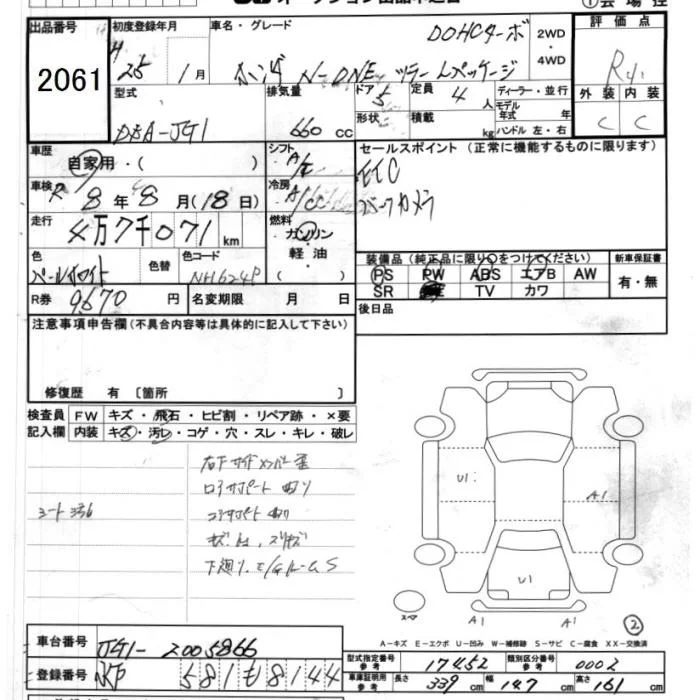 出品番号
2061
初度登録年月
H 25 年 1 月
車名・グレード
DOHCターボ
ホンダ N-ONE ツアラーLパッケージ
2WD
・
4WD
評価点
R4
外装 内装
C C
型式
DBA-JG1
排気量
660 cc
ドア
5
形状
定員
4 人
積載 kg
ディーラー・並行
モデル
年式 年
ハンドル 左・右
車歴
自家用・( )
シフト
車検
R 8 年 8 月(18日)
冷房
A/C
走行
4万7千071 km
燃料
ガソリン
軽油
( )
セールスポイント (正常に機能するものに限ります)
ETC
バックカメラ
装備品 (純正品に限り○をつけてください)
PS PW ABS エアB AW
SR TV カワ
新車保証書
有・無
色
パールホワイト
色替
色コード
NH624P
R券
9670 円
名変期限 月 日
後日品
注意事項申告欄(不具合内容等は具体的に記入して下さい)
修復歴 有 〔箇所 〕
検査員
記入欄
FW キズ・飛石・ヒビ割・リペア跡・×要
内装 キズ・汚レ・コゲ・穴・スレ・キレ・破レ
右下サイドメンバー歪
ロアサポート
コアサポート
下廻り、E/Gルーム S
U1
A1
U1
スペア
A1
A1
2
A-キズ E-エクボ U-凹み W-補修跡 S-サビ C-腐食 XX-交換済
車台番号
JG1-2005866
登録番号
581 も 8144
型式指定番号
参考
17452
類別区分番号
参考
0002
車庫証明用
参考
長さ 339 cm 幅 147 cm 高さ 161 cm